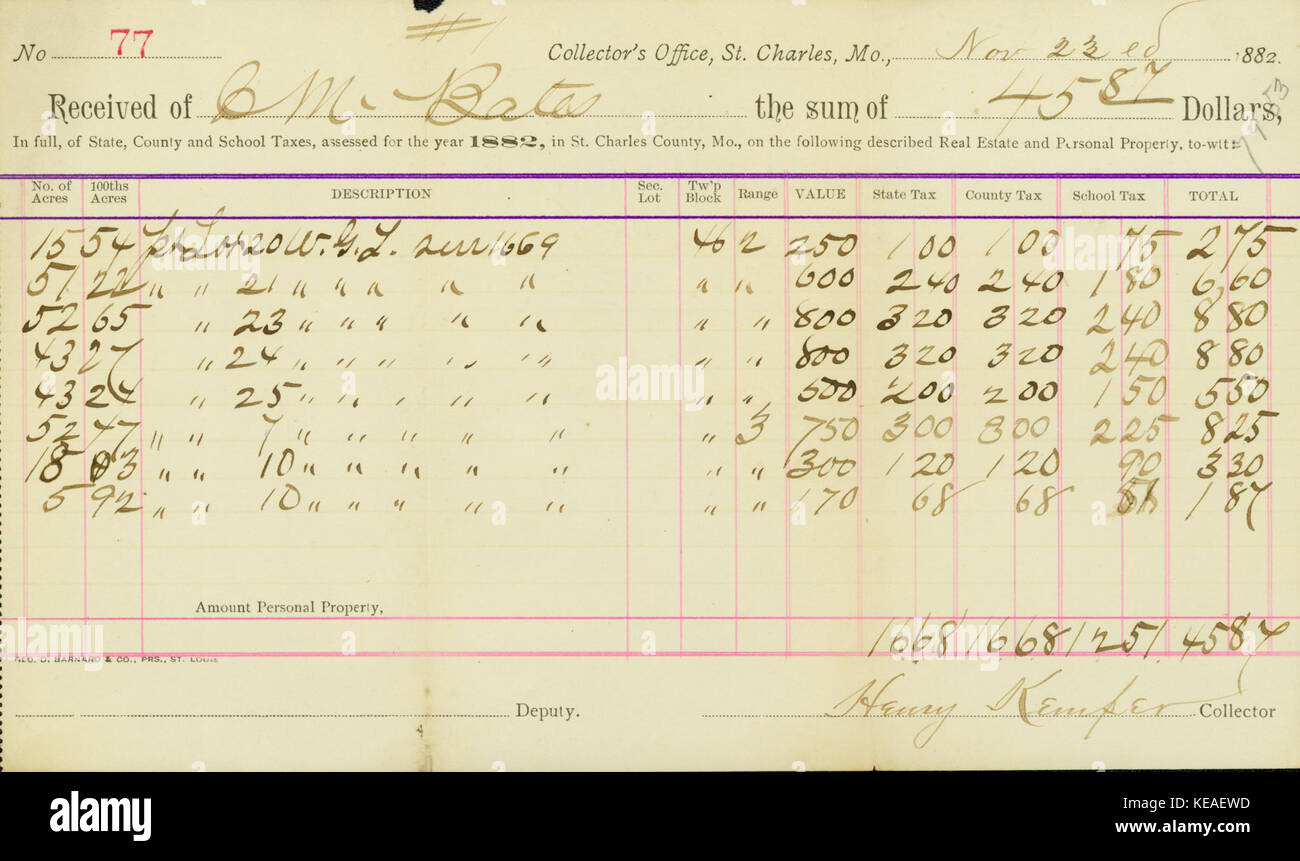 No 77 #1 Collector's Office, St. Charles, Mo., Nov 23 ed 1882.
Received of C M Bates the sum of 45 87 Dollars, 1953
In full, of State, County and School Taxes, assessed for the year 1882, in St. Charles County, Mo., on the following described Real Estate and Personal Property, to-wit:
No. of Acres 100ths Acres DESCRIPTION Sec. Lot Tw'p Block Range VALUE State Tax County Tax School Tax TOTAL
15 54 pt Lot 20 W. G. L. surr 1669 46 2 250 1 00 1 00 75 2 75
51 22 " " 21 " " " " " " " 600 2 40 2 40 1 80 6 60
52 65 " 23 " " " " " " " 800 3 20 3 20 2 40 8 80
43 27 " 24 " " " " " " " 800 3 20 3 20 2 40 8 80
43 24 " 25 " " " " " " " 500 2 00 2 00 1 50 5 50
52 47 " " 7 " " " " " " 3 750 3 00 3 00 2 25 8 25
18 03 " " 10 " " " " " " " 300 1 20 1 20 90 3 30
5 92 " " 10 " " " " " " " 170 68 68 51 1 87
Amount Personal Property,
16 68 16 68 12 51 45 87
GEO. D. BARNARD & CO., PRS., ST. LOUIS
Deputy. Henry Kemper Collector
alamy
Image ID: KEAEWD
www.alamy.com